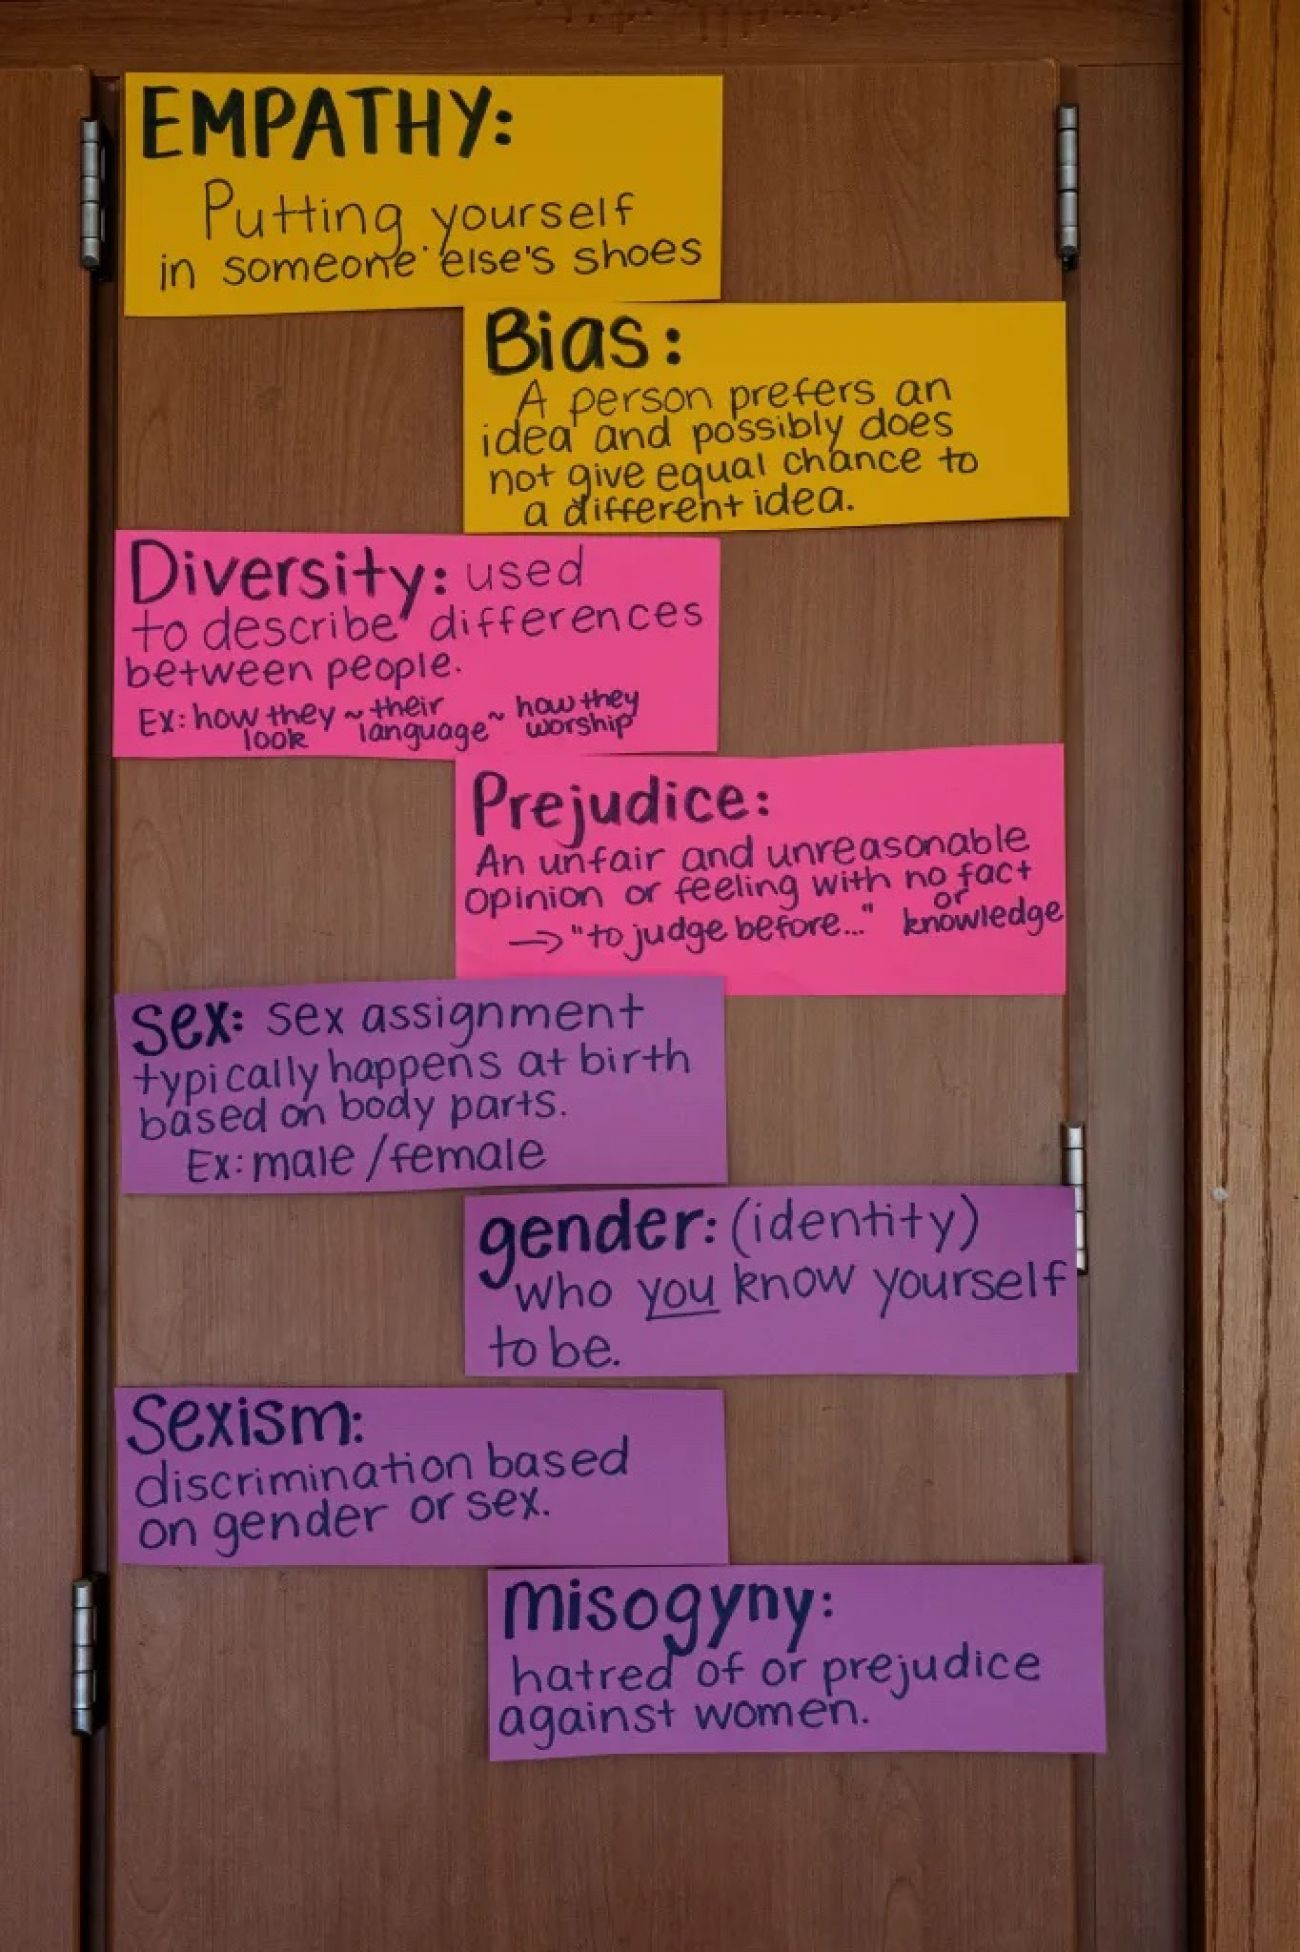 EMPATHY:
Putting yourself
in someone else's shoes
Bias:
A person prefers an
idea and possibly does
not give equal chance to
a different idea.
Diversity: used
to describe differences
between people.
Ex: how they look ~ their language ~ how they worship
Prejudice:
An unfair and unreasonable
opinion or feeling with no fact
or knowledge
→ "to judge before..."
sex: sex assignment
typically happens at birth
based on body parts.
Ex: male/female
gender: (identity)
who you know yourself
to be.
Sexism:
discrimination based
on gender or sex.
misogyny:
hatred of or prejudice
against women.